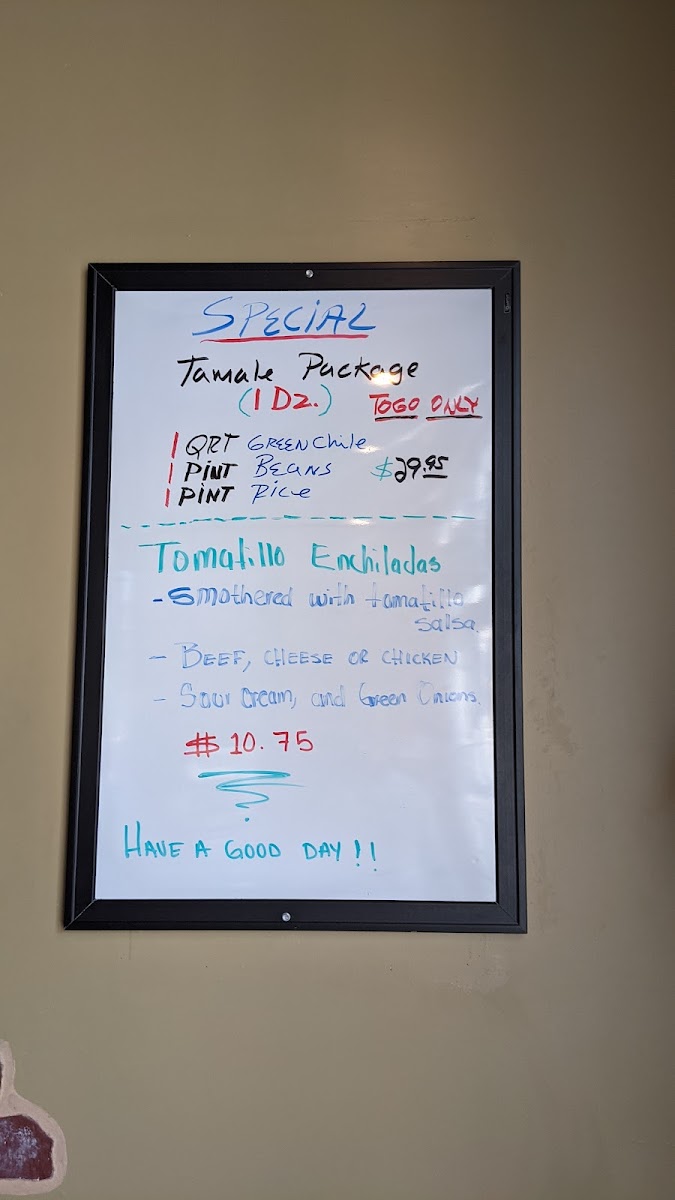 SPECIAL
Tamale Package
(1 DZ.) TOGO ONLY
1 QRT GREEN Chile
1 PINT BEANS $29.95
1 PINT RICE
Tomatillo Enchiladas
- Smothered with tomatillo
salsa.
- BEEF, CHEESE OR CHICKEN
- Sour Cream, and Green Onions.
$10.75
HAVE A GOOD DAY!!